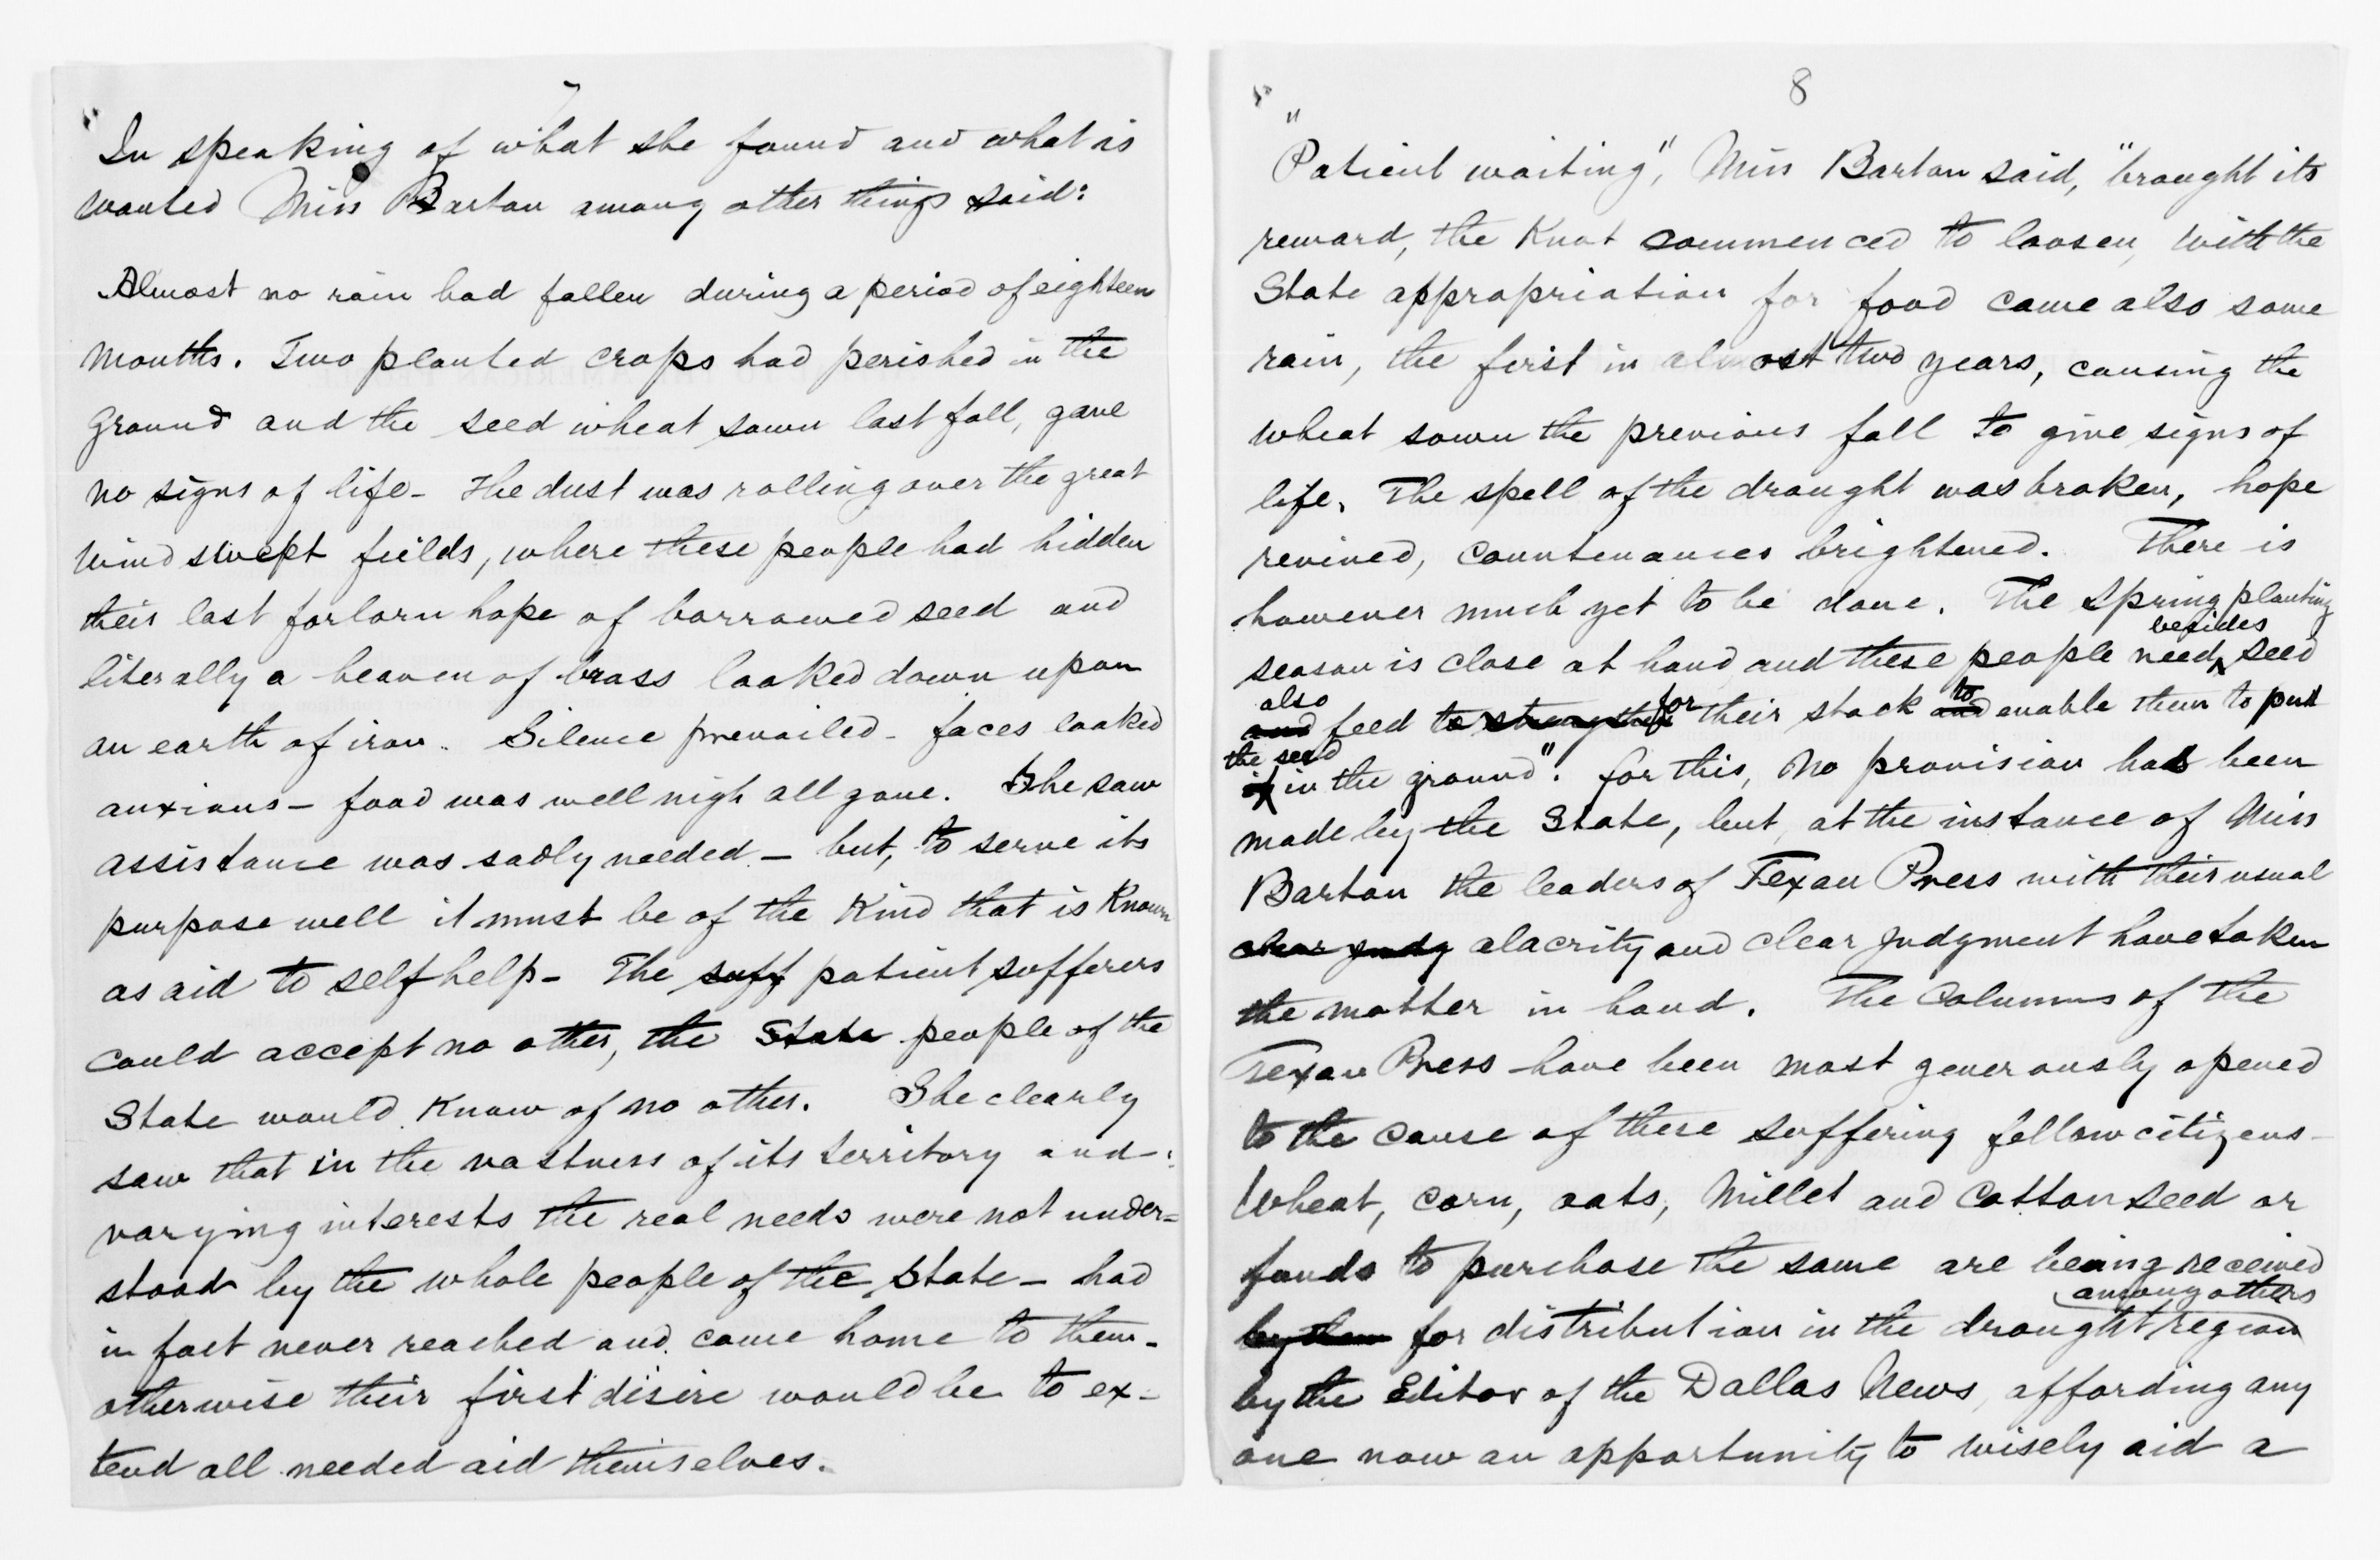 7
In speaking of what she found and what is
wanted Miss Barton among other things said:
Almost no rain had fallen during a period of eighteen
months. Two planted crops had perished in the
ground and the seed wheat sown last fall, gave
no signs of life - The dust was rolling over the great
wind swept fields, where these people had hidden
their last forlorn hope of borrowed seed and
literally a heaven of brass looked down upon
an earth of iron. Silence prevailed - faces looked
anxious - food was well nigh all gone. She saw
assistance was sadly needed - but, to serve its
purpose well it must be of the kind that is known
as aid to self help - The suff patient sufferers
could accept no other, the State people of the
State would know of no other. She clearly
saw that in the vastness of its territory and
varying interests the real needs were not under=
stood by the whole people of the State - had
in fact never reached and come home to them -
otherwise their first desire would be to ex-
tend all needed aid themselves.
8
"Patient waiting", Miss Barton said, "brought its
reward, the knot commenced to loosen, with the
State appropriation for food came also some
rain, the first in almost two years, causing the
wheat sown the previous fall to give signs of
life. The spell of the drought was broken, hope
revived, countenances brightened. There is
however much yet to be done. The Spring planting
besides
season is close at hand and these people need seed
also for to
and feed to strengthen their stock and enable them to put
the seed
it in the ground". For this, no provision had been
made by the State, but, at the instance of Miss
Barton the leaders of Texan Press with their usual
clear judg alacrity and clear judgment have taken
the matter in hand. The Columns of the
Texan Press have been most generously opened
to the cause of these suffering fellow citizens -
Wheat, corn, oats, Millet and Cotton seed or
funds to purchase the same are being received
among others
by them for distribution in the drought region
by the Editor of the Dallas News, affording any
one now an opportunity to wisely aid a